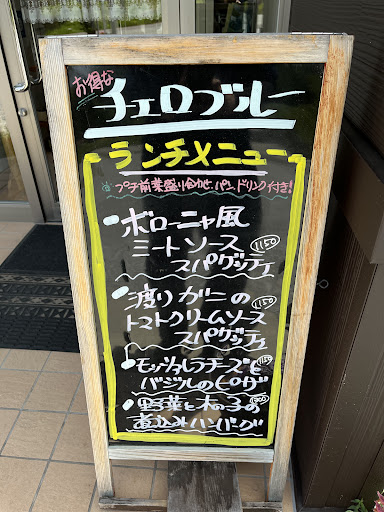 お得な
チェロブルー
ランチメニュー
プチ前菜盛り合わせ、パン、ドリンク付き!
ボローニャ風
ミートソース 1150
スパゲッティ
渡りガニの 1150
トマトクリームソース
スパゲッティ
モッツァレラチーズと 1150
バジルのピザ
野菜と木の子の
煮込みハンバーグ